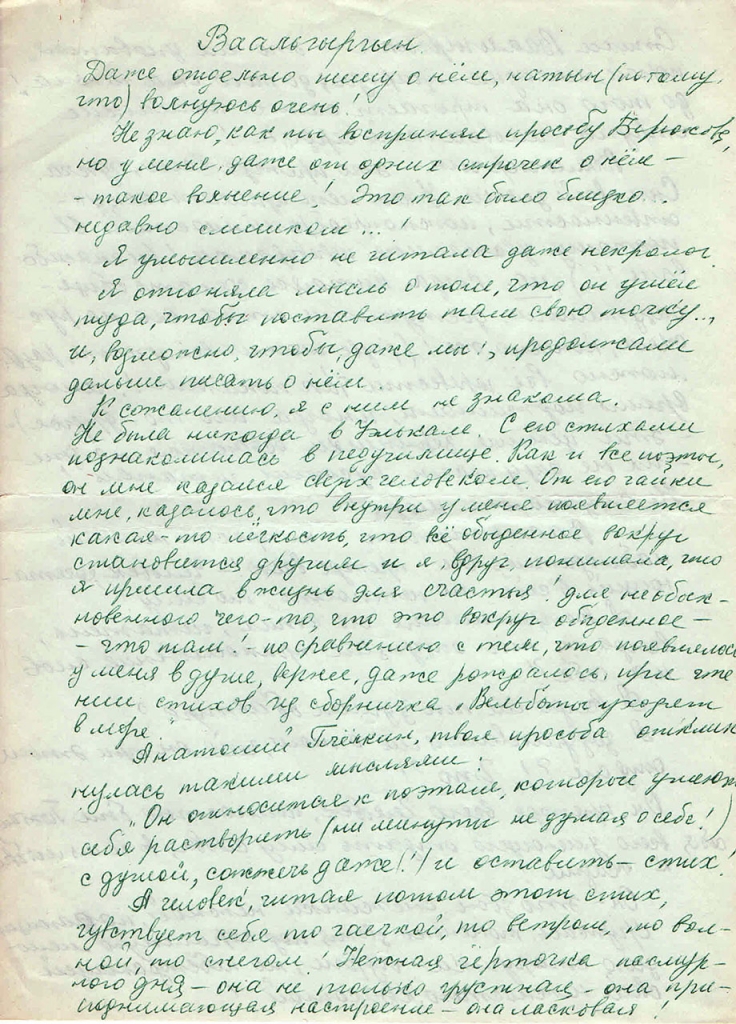 Ваальгыргын.
Даже отдельно пишу о нём, натын (потому,
что) волнуюсь очень!
Не знаю, как ты воспринял просьбу Бирюкова,
но у меня даже от одних строчек о нём –
– такое волнение! Это так было близко..
недавно слишком...!
Я умышленно не читала даже некролог.
Я отгоняла мысль о том, что он ушёл
туда, чтобы поставить там свою точку...,
и, возможно, чтобы, даже мы!, продолжали
дальше писать о нём.
К сожалению, я с ним не знакома.
Не была никогда в Уэлькале. С его стихами
познакомилась в педучилище. Как и все поэты,
он мне казался сверхчеловеком. От его чайки
мне, казалось, что внутри у меня появляется
какая-то лёгкость, что всё обыденное вокруг
становится другим и я, вдруг, понимала, что
я пришла в жизнь для счастья! для необык-
новенного чего-то, что это вокруг обыденное –
– что там! – по сравнению с тем, что появлялось
у меня в душе, вернее, даже рождалось, при чте
нии стихов из сборничка „Вельботы уходят
в море."
Анатолий Пчёлкин, твоя просьба отклик
нулась такими мыслями:
„Он относится к поэтам, которые умеют
себя растворить (ни минуты не думая о себе!)
с душой, сожечь даже(!) и оставить – стих!
А человек, читая потом этот стих,
чувствует себя то чаечкой, то ветром, то вол-
ной, то снегом! Нежная чёрточка пасмур-
ного дня – она не только грустная – она при-
поднимающая настроение – она ласковая!